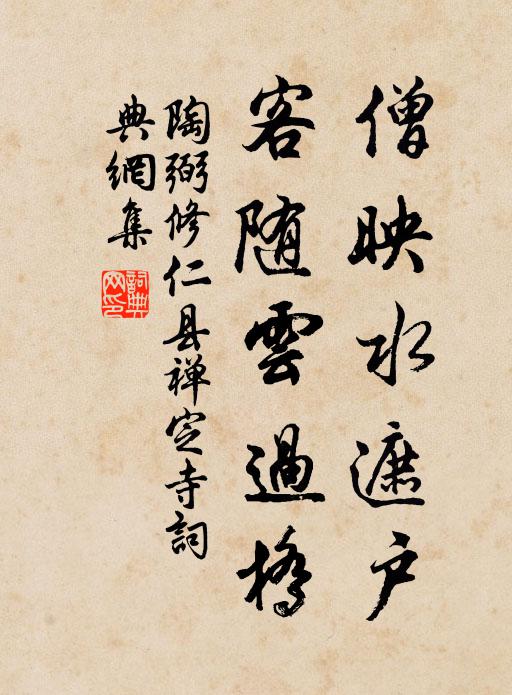 僧映水遮户
客随雲過橋
陶弼修仁县禅定寺詞
典網集
詞典网印